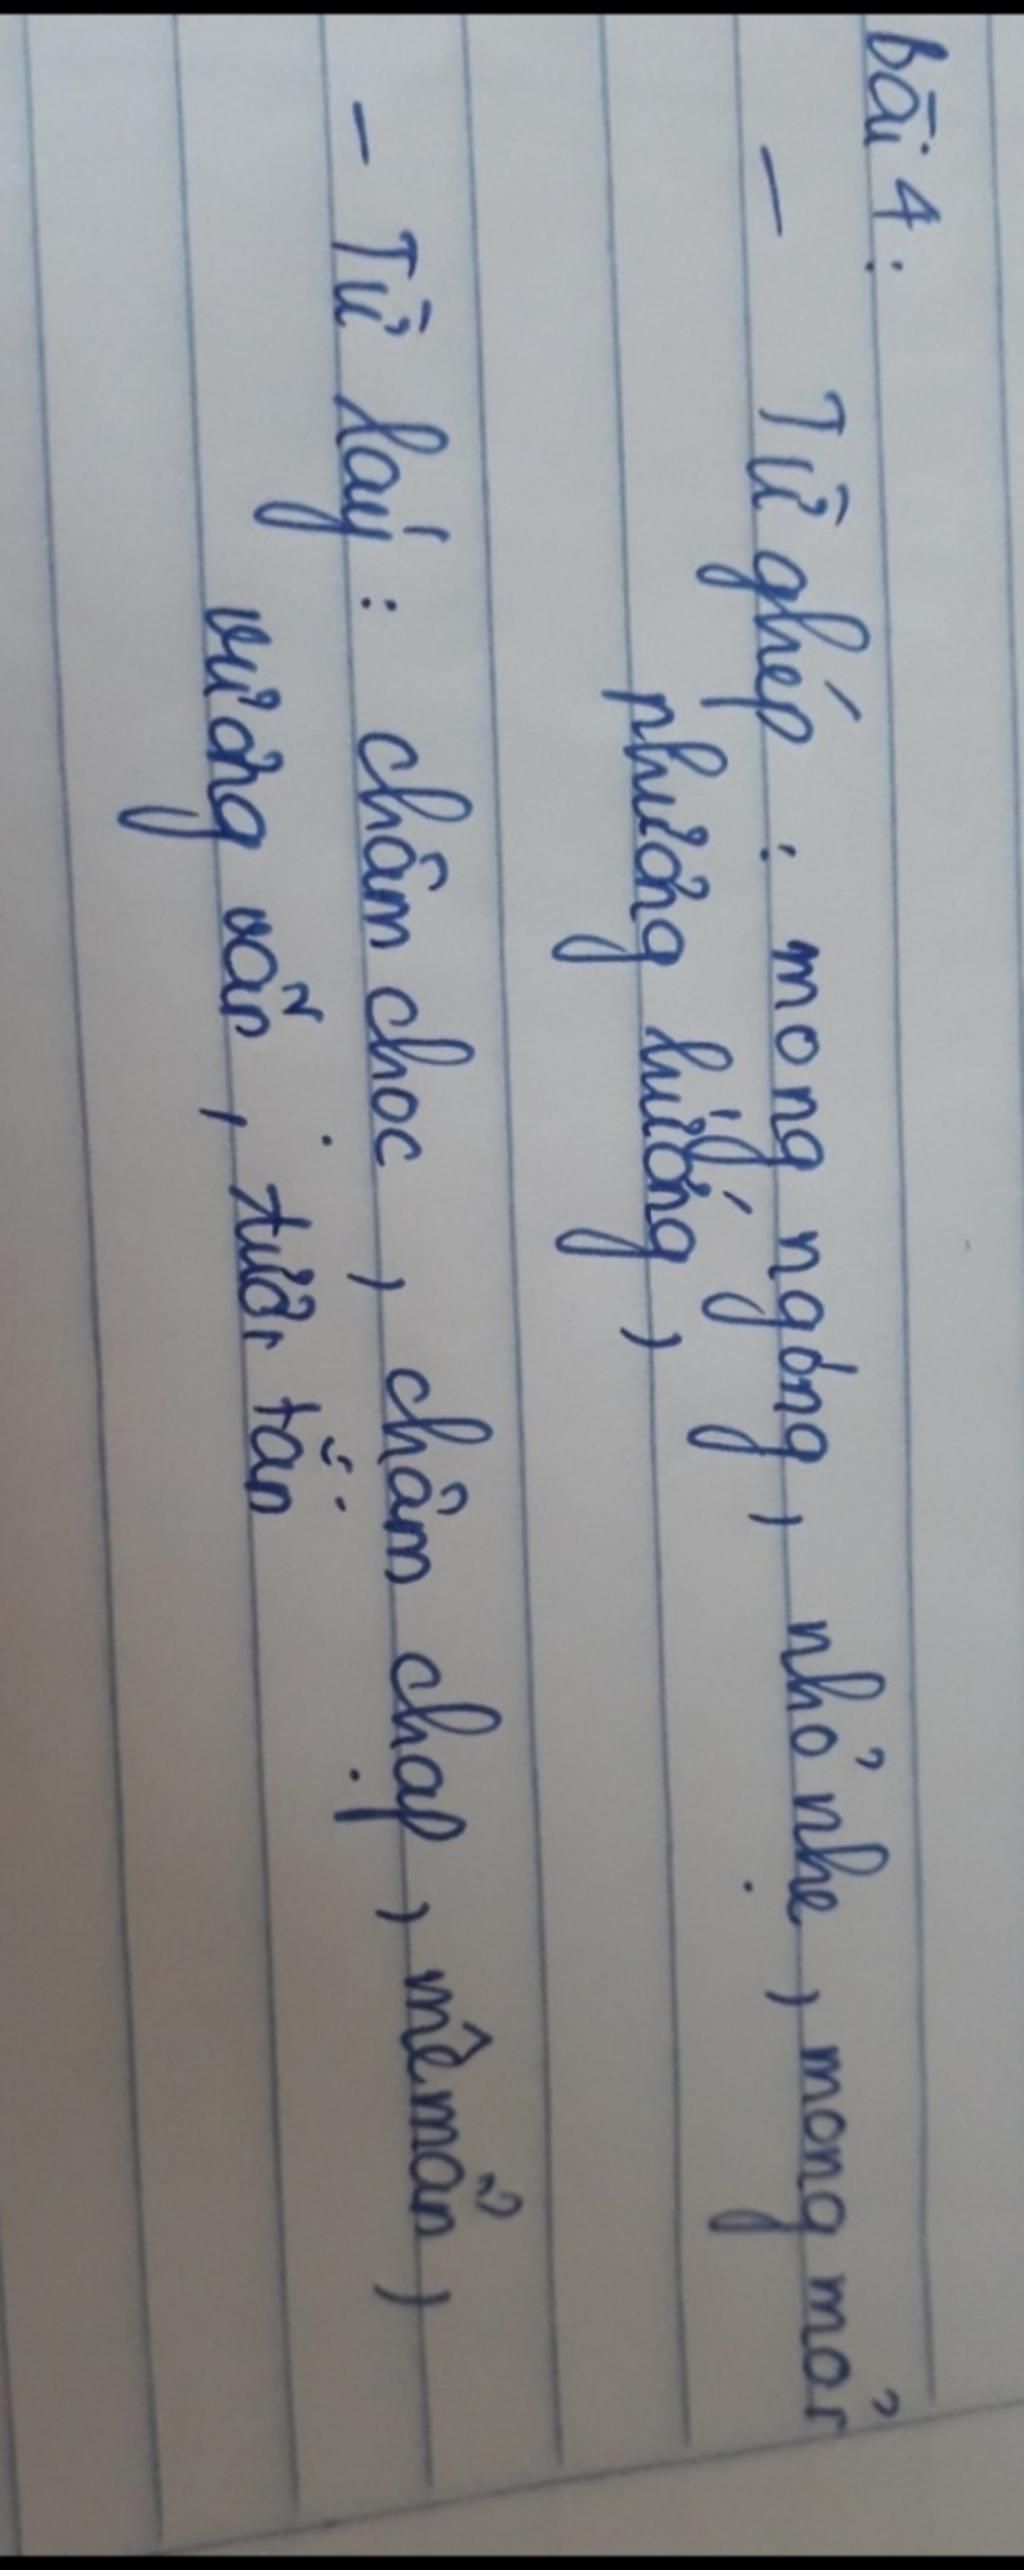 Bài 4:
- Từ ghép: mong ngóng, nhỏ nhẹ, mong mỏi
phương hướng,
- Từ láy: châm chọc, chậm chạp, mê mẩn,
vương vấn, tươi tắn